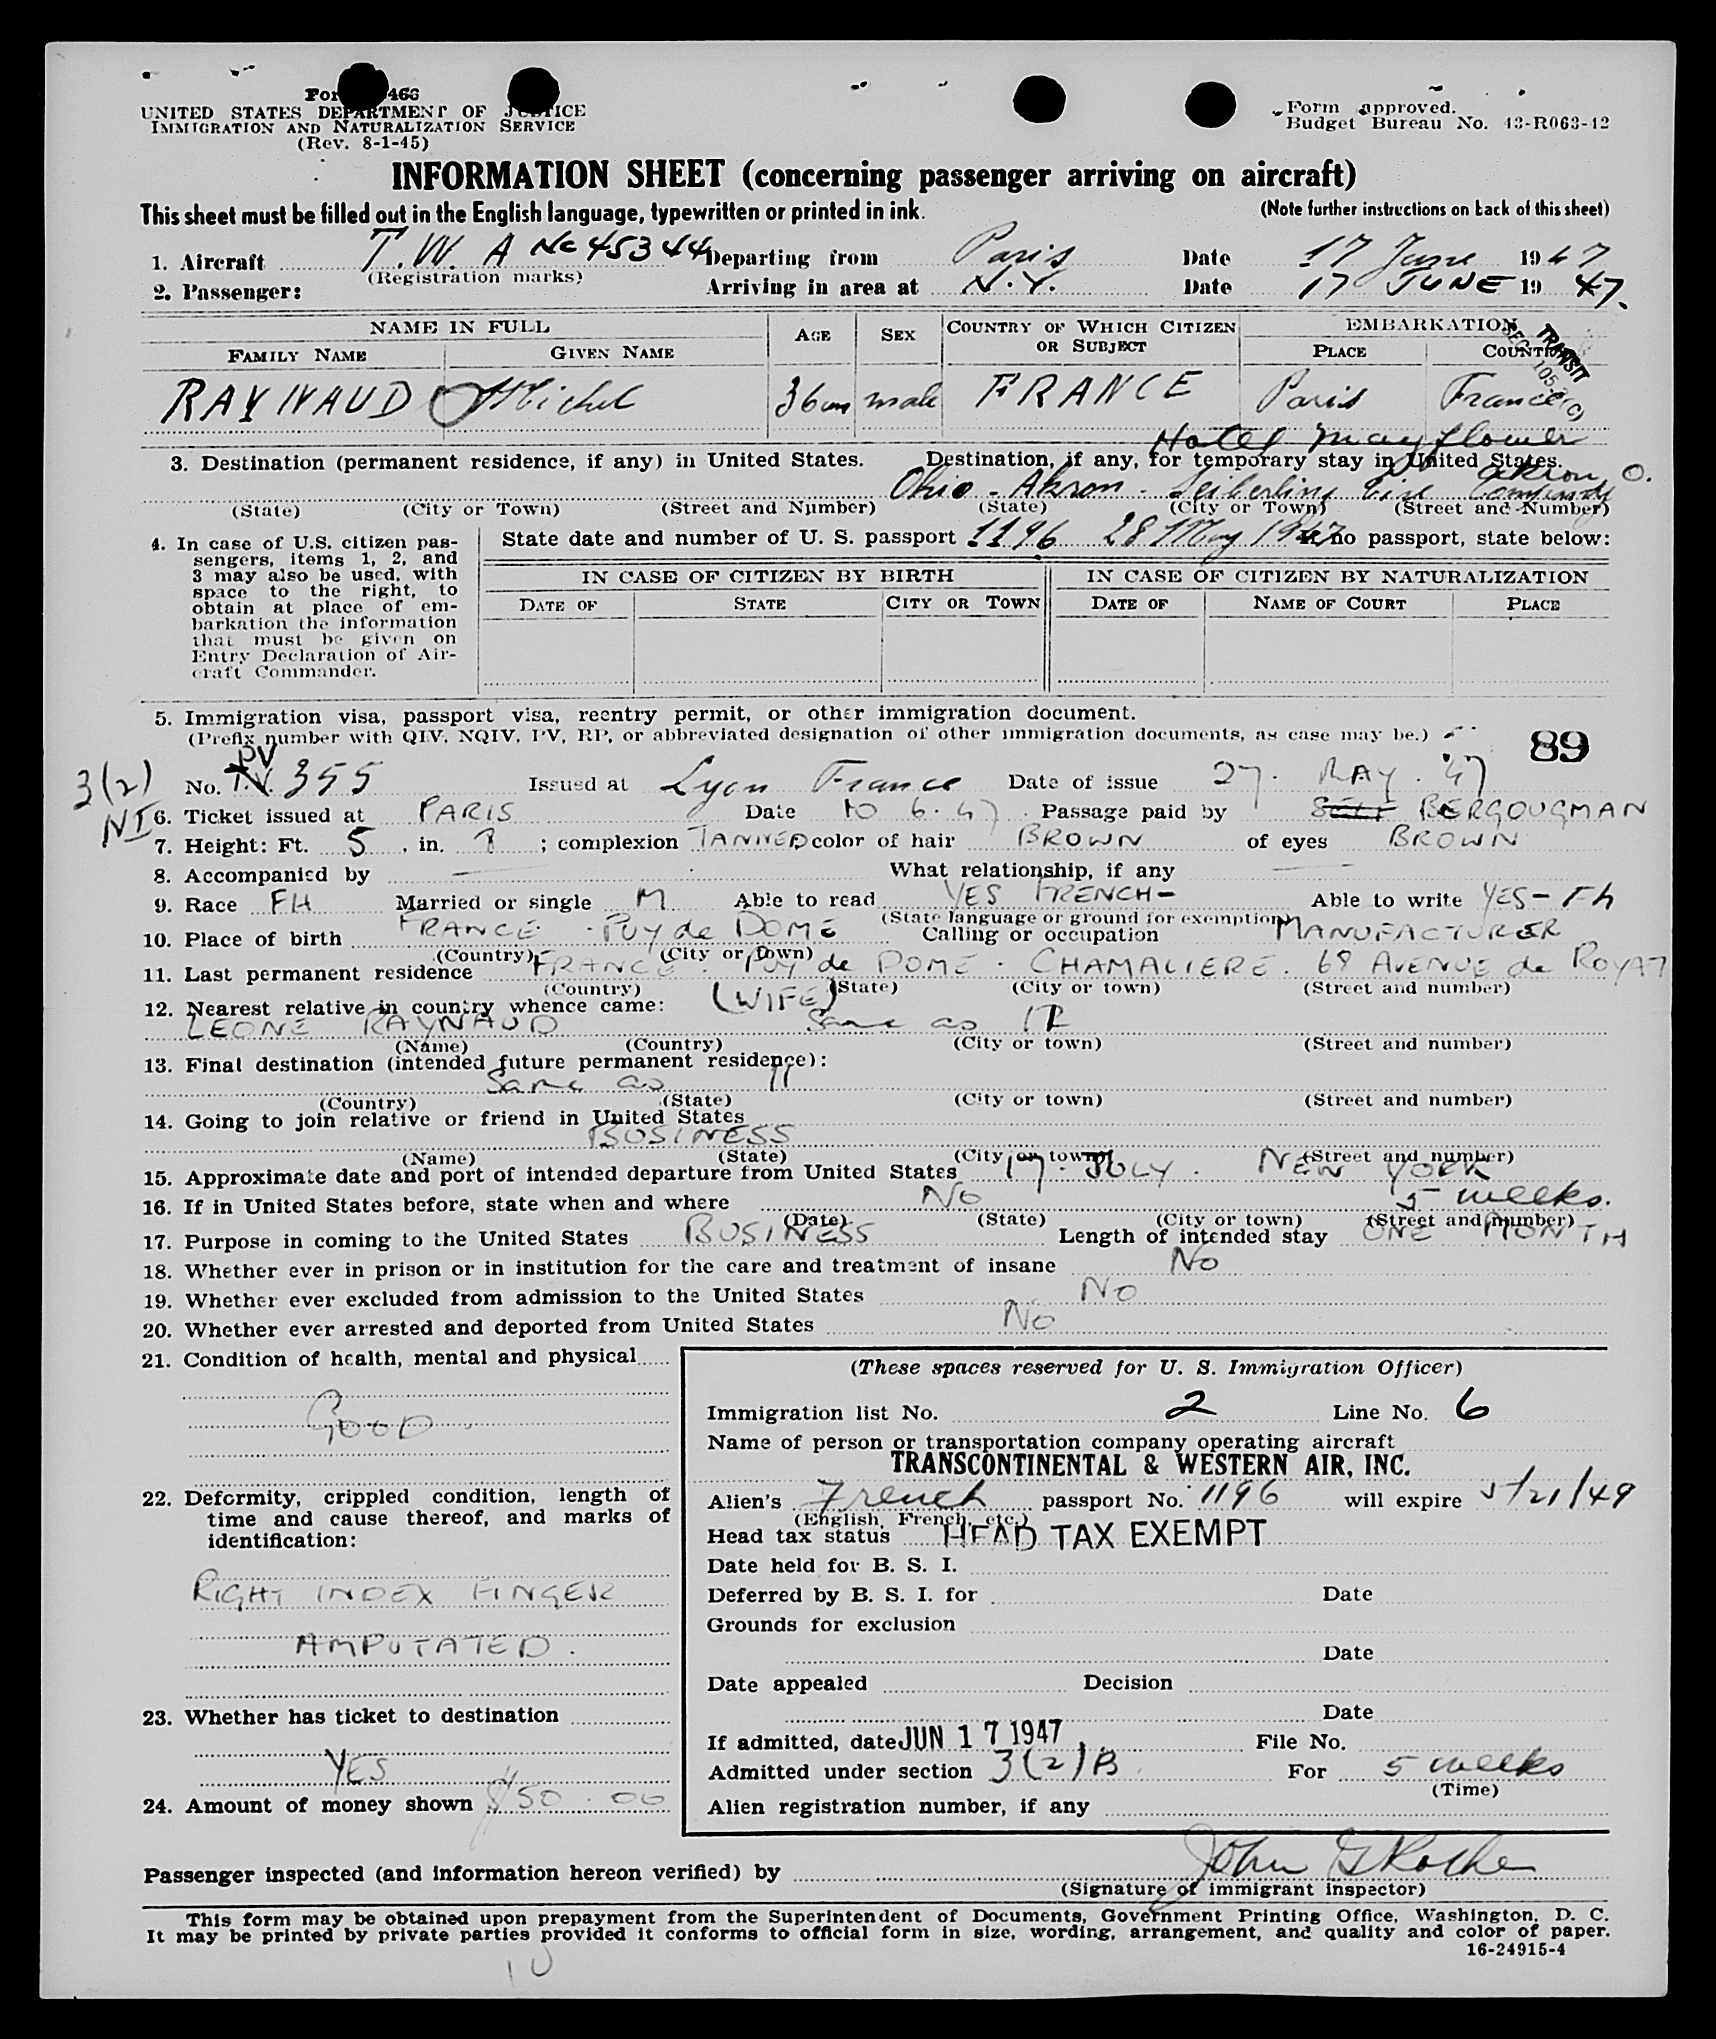 UNITED STATES DEPARTMENT OF JUSTICE
IMMIGRATION AND NATURALIZATION SERVICE
(Rev. 8-1-45)
Form approved.
Budget Bureau No. 43-R063-12
INFORMATION SHEET (concerning passenger arriving on aircraft)
This sheet must be filled out in the English language, typewritten or printed in ink.
(Note further instructions on back of this sheet)
1. Aircraft T.W.A Nc 45344 Departing from Paris Date 17 June 1947
(Registration marks)
2. Passenger: Arriving in area at N.Y. Date 17 JUNE 1947.
NAME IN FULL AGE SEX COUNTRY OF WHICH CITIZEN OR SUBJECT EMBARKATION
FAMILY NAME GIVEN NAME PLACE COUNTRY
TRANSIT
RAYNAUD Michel 36 male FRANCE Paris France
Hotel Mayflower
3. Destination (permanent residence, if any) in United States. Destination, if any, for temporary stay in United States.
Akron O.
Ohio - Akron - Seiberling Tire Company
(State) (City or Town) (Street and Number) (State) (City or Town) (Street and Number)
4. In case of U.S. citizen pas-
sengers, items 1, 2, and
3 may also be used, with
space to the right, to
obtain at place of em-
barkation the information
that must be given on
Entry Declaration of Air-
craft Commander.
State date and number of U. S. passport 1196 28 May 1947 no passport, state below:
IN CASE OF CITIZEN BY BIRTH IN CASE OF CITIZEN BY NATURALIZATION
DATE OF STATE CITY OR TOWN DATE OF NAME OF COURT PLACE
5. Immigration visa, passport visa, reentry permit, or other immigration document.
(Prefix number with QIV, NQIV, PV, RP, or abbreviated designation of other immigration documents, as case may be.)
89
3(2)
NI
PV
No. T.V. 355 Issued at Lyon France Date of issue 27. MAY. 47
6. Ticket issued at PARIS Date 10 6. 47 Passage paid by SELF BERGOUGMAN
7. Height: Ft. 5, in. 8; complexion TANNED color of hair BROWN of eyes BROWN
8. Accompanied by — What relationship, if any —
9. Race FH Married or single M Able to read YES FRENCH- Able to write YES-Fh
(State language or ground for exemption)
10. Place of birth FRANCE. PUY de DOME Calling or occupation MANUFACTURER
(Country) (City or town)
11. Last permanent residence FRANCE. PUY de DOME. CHAMALIERE. 68 AVENUE de ROYAT
(Country) (State) (City or town) (Street and number)
12. Nearest relative in country whence came: (WIFE)
LEONE RAYNAUD Same as 11
(Name) (Country) (City or town) (Street and number)
13. Final destination (intended future permanent residence):
Same as 11
(Country) (State) (City or town) (Street and number)
14. Going to join relative or friend in United States
BUSINESS
(Name) (State) (City or town) (Street and number)
15. Approximate date and port of intended departure from United States 17. JULY. NEW YORK
16. If in United States before, state when and where No
5 weeks.
(Date) (State) (City or town) (Street and number)
17. Purpose in coming to the United States BUSINESS Length of intended stay ONE MONTH
18. Whether ever in prison or in institution for the care and treatment of insane No
19. Whether ever excluded from admission to the United States No
20. Whether ever arrested and deported from United States No
21. Condition of health, mental and physical
GOOD.
22. Deformity, crippled condition, length of
time and cause thereof, and marks of
identification:
RIGHT INDEX FINGER
AMPUTATED.
23. Whether has ticket to destination
YES
24. Amount of money shown $50.00
(These spaces reserved for U. S. Immigration Officer)
Immigration list No. 2 Line No. 6
Name of person or transportation company operating aircraft
TRANSCONTINENTAL & WESTERN AIR, INC.
Alien's French passport No. 1196 will expire 5/21/49
(English, French, etc.)
Head tax status HEAD TAX EXEMPT
Date held for B. S. I.
Deferred by B. S. I. for Date
Grounds for exclusion
Date
Date appealed Decision
Date
If admitted, date JUN 17 1947 File No.
Admitted under section 3(2)B For 5 weeks
(Time)
Alien registration number, if any
Passenger inspected (and information hereon verified) by John G Roche
(Signature of immigrant inspector)
This form may be obtained upon prepayment from the Superintendent of Documents, Government Printing Office, Washington, D. C.
It may be printed by private parties provided it conforms to official form in size, wording, arrangement, and quality and color of paper.
16-24915-4
10